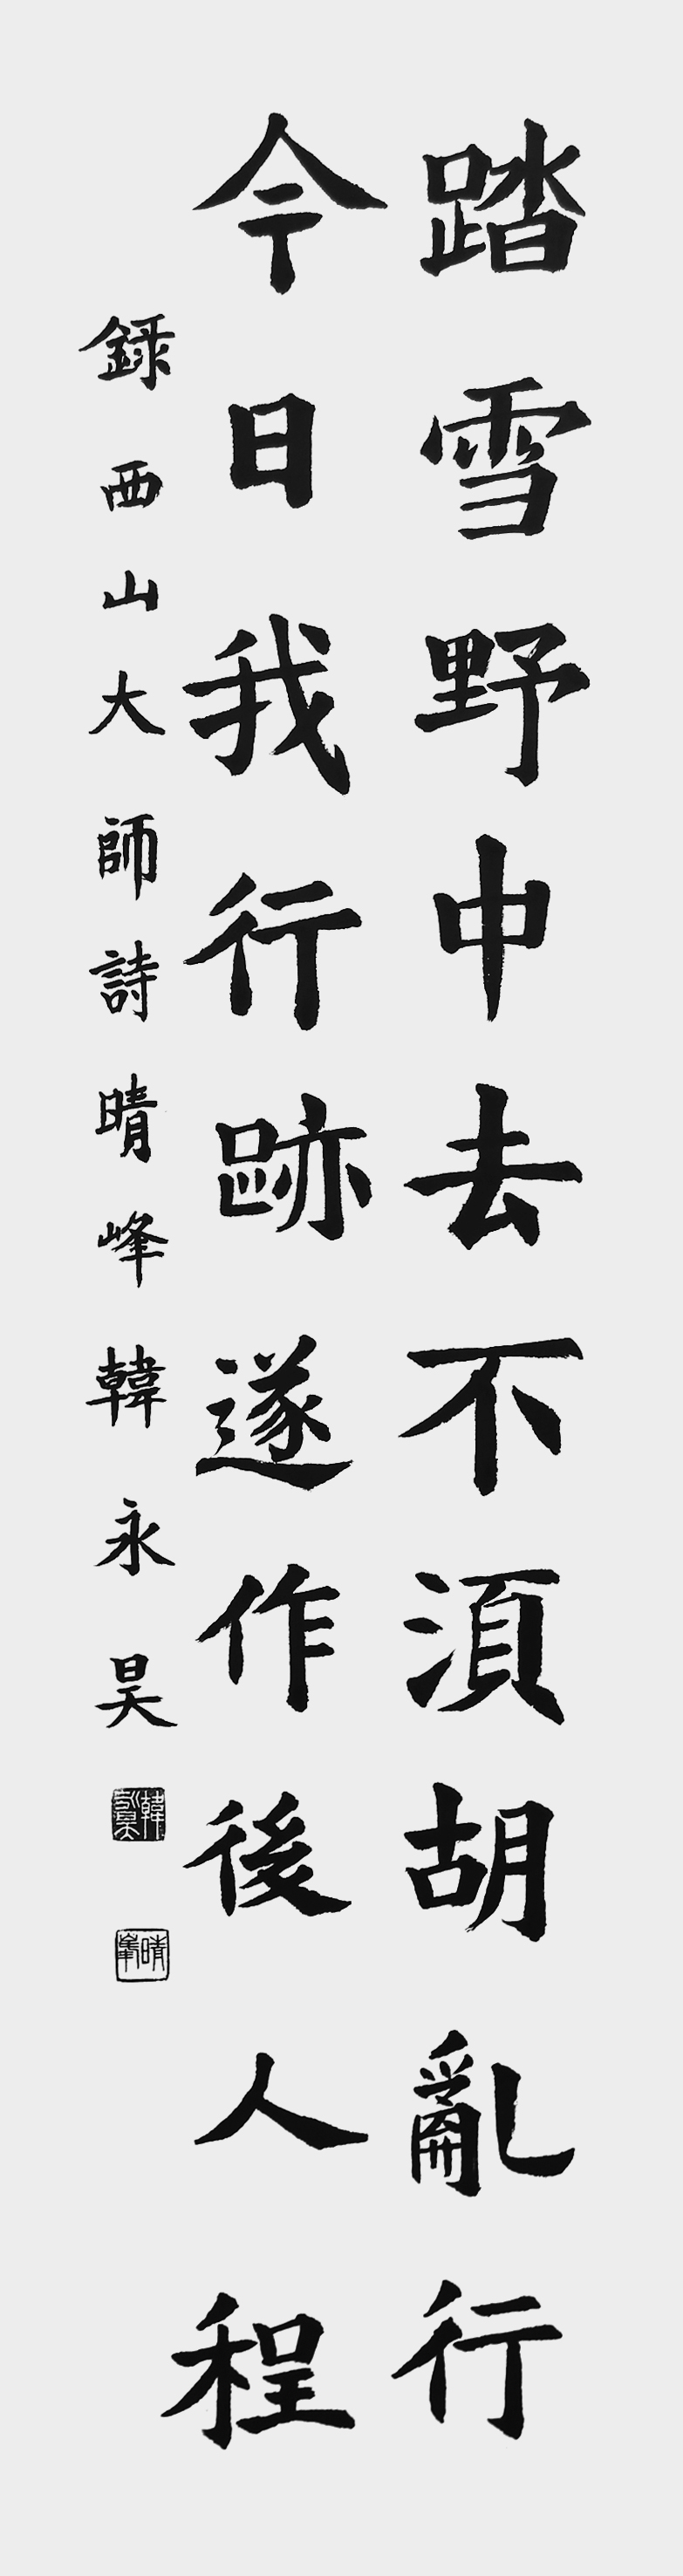 踏雪野中去不湏胡亂行
今日我行跡遂作後人程
錄西山大師詩晴峰韓永昊
韓永昊
晴峯